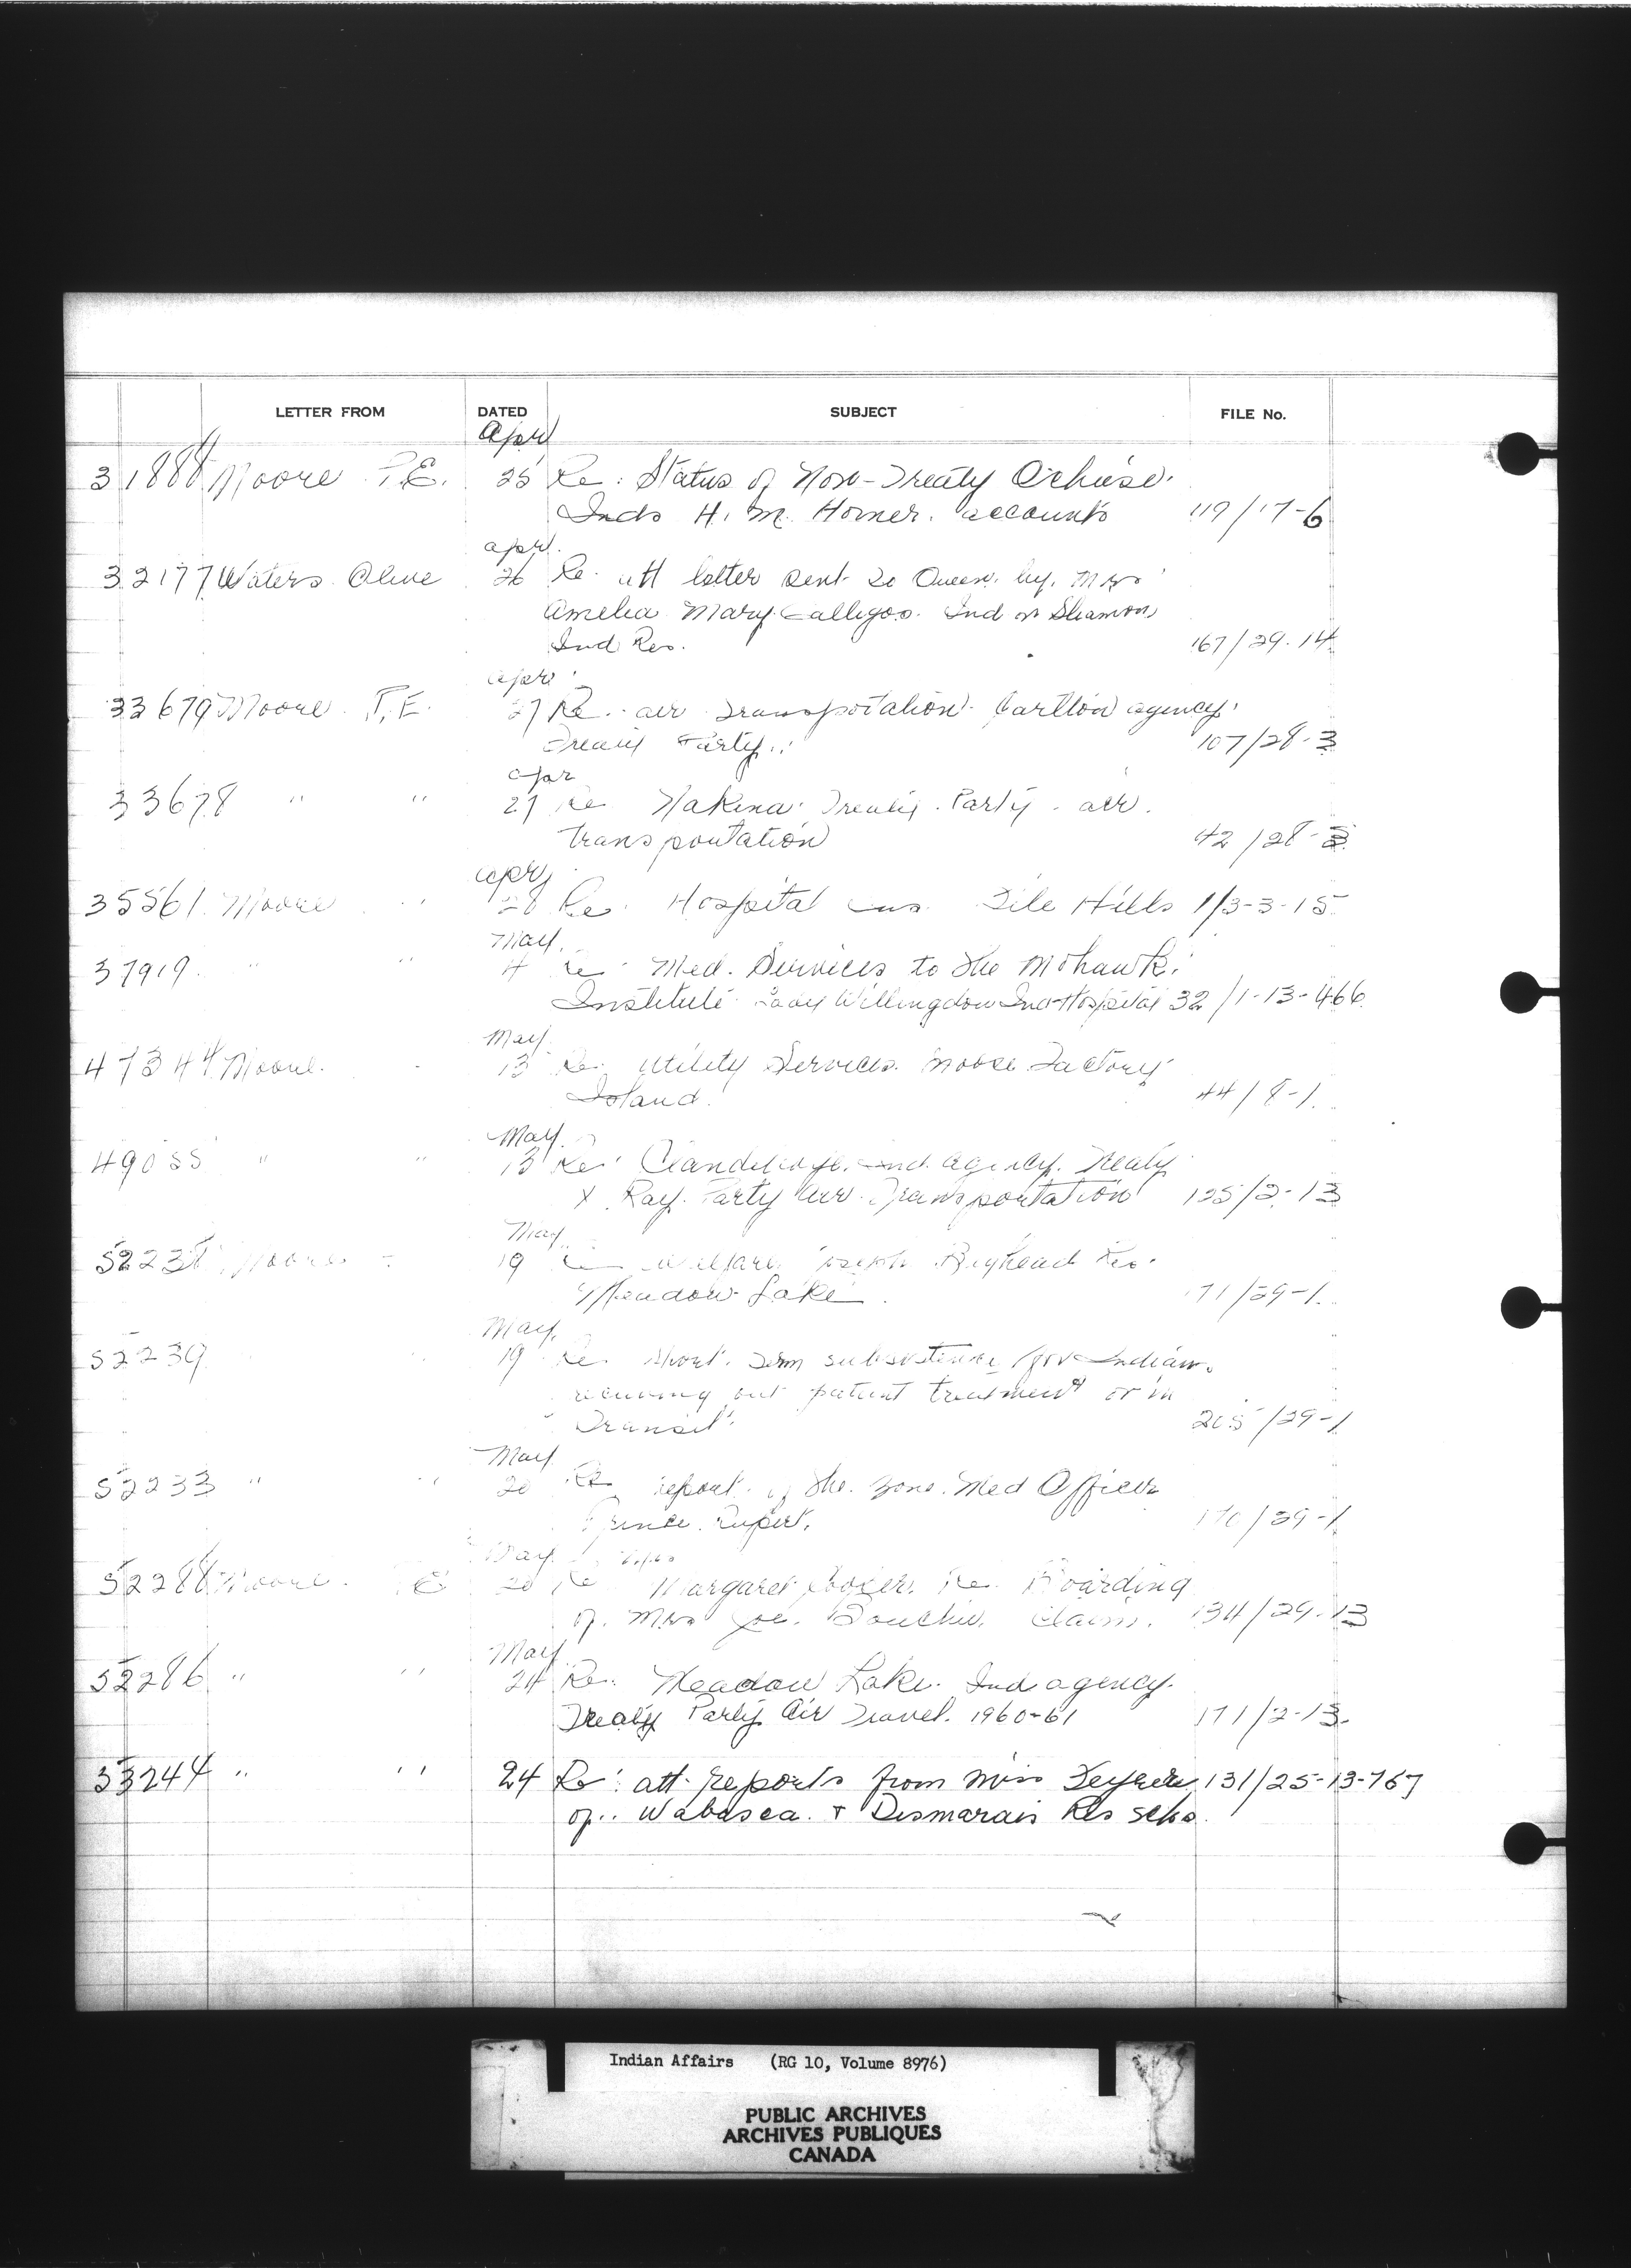 LETTER FROM DATED SUBJECT FILE No.
Apr
31888 Moore P.E. 25 Re: Status of Non-Treaty
Inds H. M. Horner. accounts 119/17-6
apr.
32177 Waters Olive 26 Re. att letter sent to Queen. by. Mrs
Amelia Mary Ind on
Ind Res. 167/29-14
apr
33679 Moore P.E. 27 Re. air Transpotation Carlton agency.
Treaty Party. 107/28-3
apr
33678 " " 27 Re Nakina Treaty Party - air.
transpoutation 42/28-3
apr
35561 Moore " 28 Re. Hospital File Hills 1/3-3-15
May.
37919 " " 4 Re Med. Services to the Mohawk.
Institute Lady Willingdon Ind Hospital 32/1-13-466
May
47344 Moore. 13 Re. Utility Services. Moose Factory
Island. 44/8-1.
May.
49055 " " 13 Re: Clandeboye. Ind. agency. Treaty
X Ray. Party air. Transpoutation 125/2-13
May
Moore 19 welfare Joseph Bighead Res.
Meadow Lake. 171/29-1.
May.
52239 19 Re. short. term subsistence for Indians
receiving out patient treatment or in
Transit. 205/29-1
May
52233 " " 20 Re report of the. zone. Med Officer
Prince. Rupert. 170/29-1
May
52288 Moore. P.E 20 Re Margaret Re. Boarding
of. Mrs Joe. Claim. 134/29-13
May
52286 " " 24 Re: Meadow Lake. Ind agency.
Treaty Party Air Travel. 1960-61 171/2-13.
53244 " " 24 Re: att. reports from Miss 131/25-13-767
of.. Wabasca. + Desmarais Res Schs.
Indian Affairs (RG 10, Volume 8976)
PUBLIC ARCHIVES
ARCHIVES PUBLIQUES
CANADA